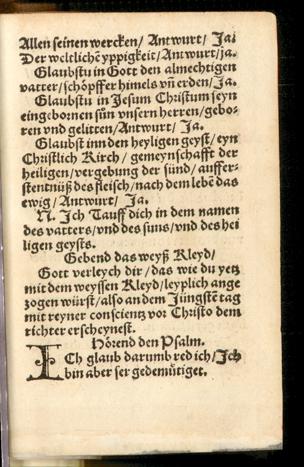 Allen seinen wercken/ Antwurt/ Ja.
Der weltlichē yppigkeit/Antwurt/ja.
Glaubstu in Gott den almechtigen
vatter/schöpffer himels vn̄ erden/Ja.
Glaubstu in Jesum Christum seyn
eingebornen sūn vnsern herren/gebo-
ren vnd gelitten/Antwurt/ Ja.
Glaubst inn den heyligen geyst/eyn
Christlich Kirch/ gemeynschafft der
heiligen/vergebung der sünd/auffer-
stentnüß des fleisch/nach dem lebē das
ewig/ Antwurt/ Ja.
N. Ich Tauff dich in dem namen
des vatters/vnd des suns/vnd des hei
ligen geysts.
Gebend das weyß Kleyd/
Gott verleych dir/das wie du yetz
mit dem weyssen Kleyd/leyplich ange
zogen würst/also an dem Jüngstē tag
mit reyner conscientz vor Christo dem
richter erscheynest.
Hörend den Psalm.
ICh glaub darumb red ich/Ich
bin aber ser gedemütiget.